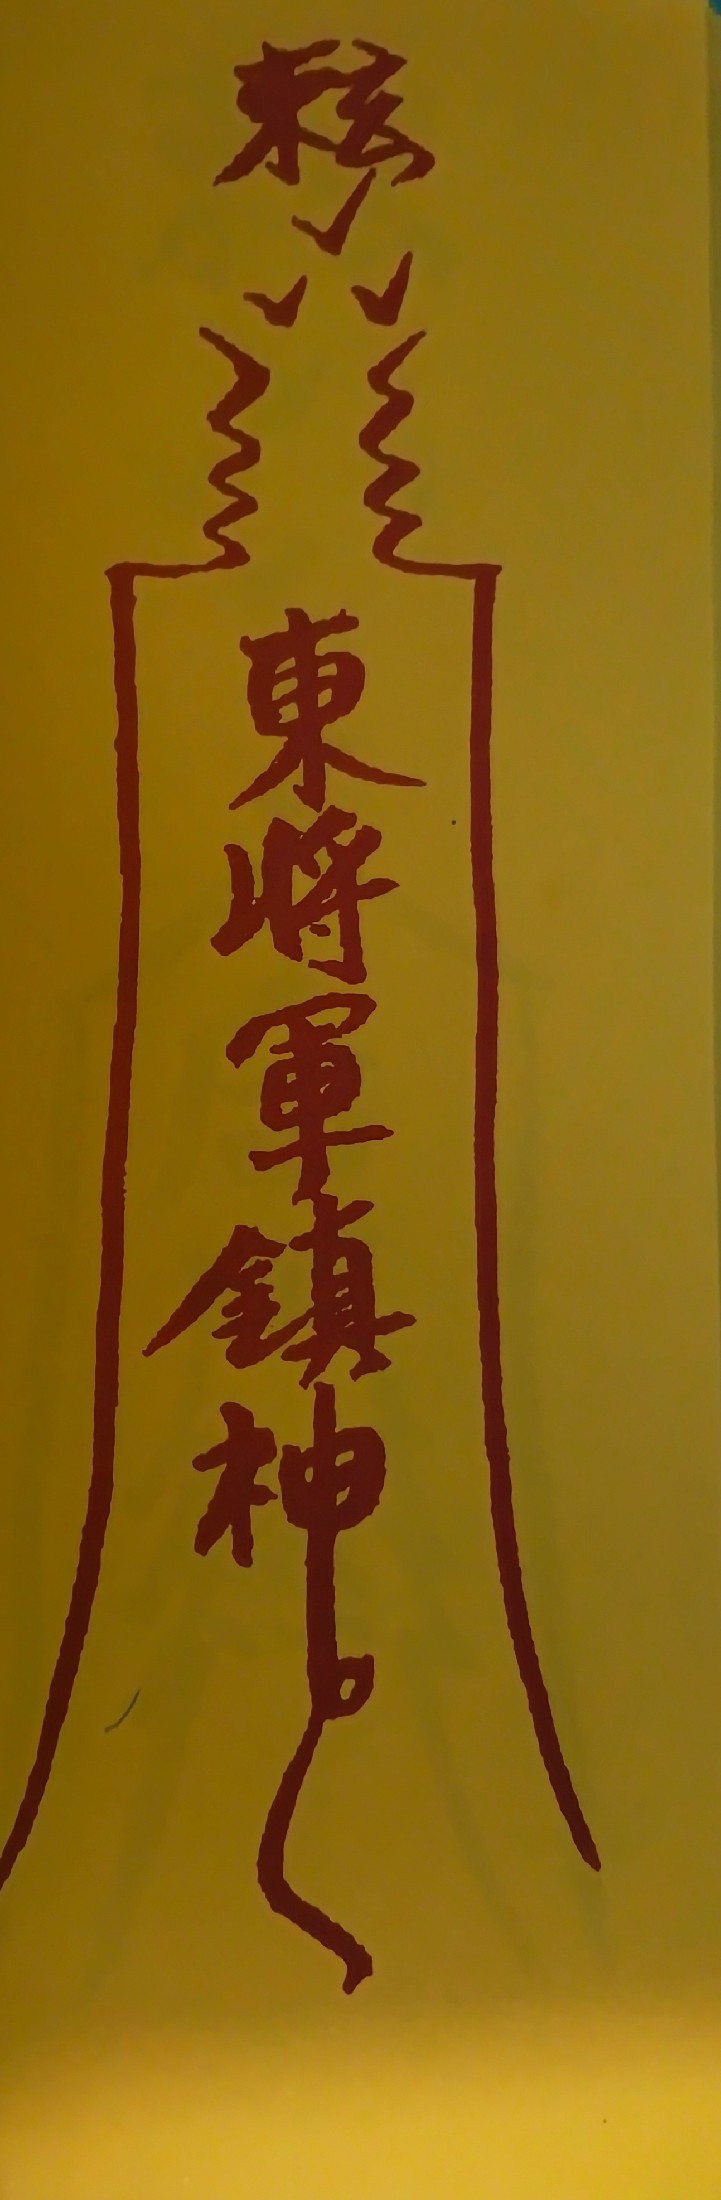 東將軍鎮神